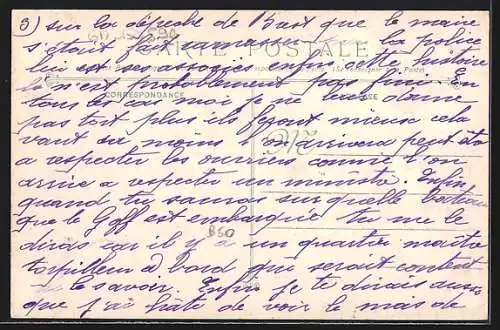 3) sur la dépêche de Brest que le maire
s'était fait ramasser la police
CARTE POSTALE
lui est ses associés enfin cette histoire
la n'est probablement pas fini En
CORRESPONDANCE
tous les cas moi je ne les blame
pas tout plus ils feront mieux cela
vaut du moins l'on arrivera peut être
a respecter les ouvriers comme l'on
arrive a respecter un ministre. Enfin
quand tu sauras sur quelle bateau
que le Goff est embarqué tu me le
B50
diras car il y a un quartier maitre
torpilleur a bord qui serait content
le savoir. Enfin je te dirais aussi
que j'ai hâte de voir le mois de